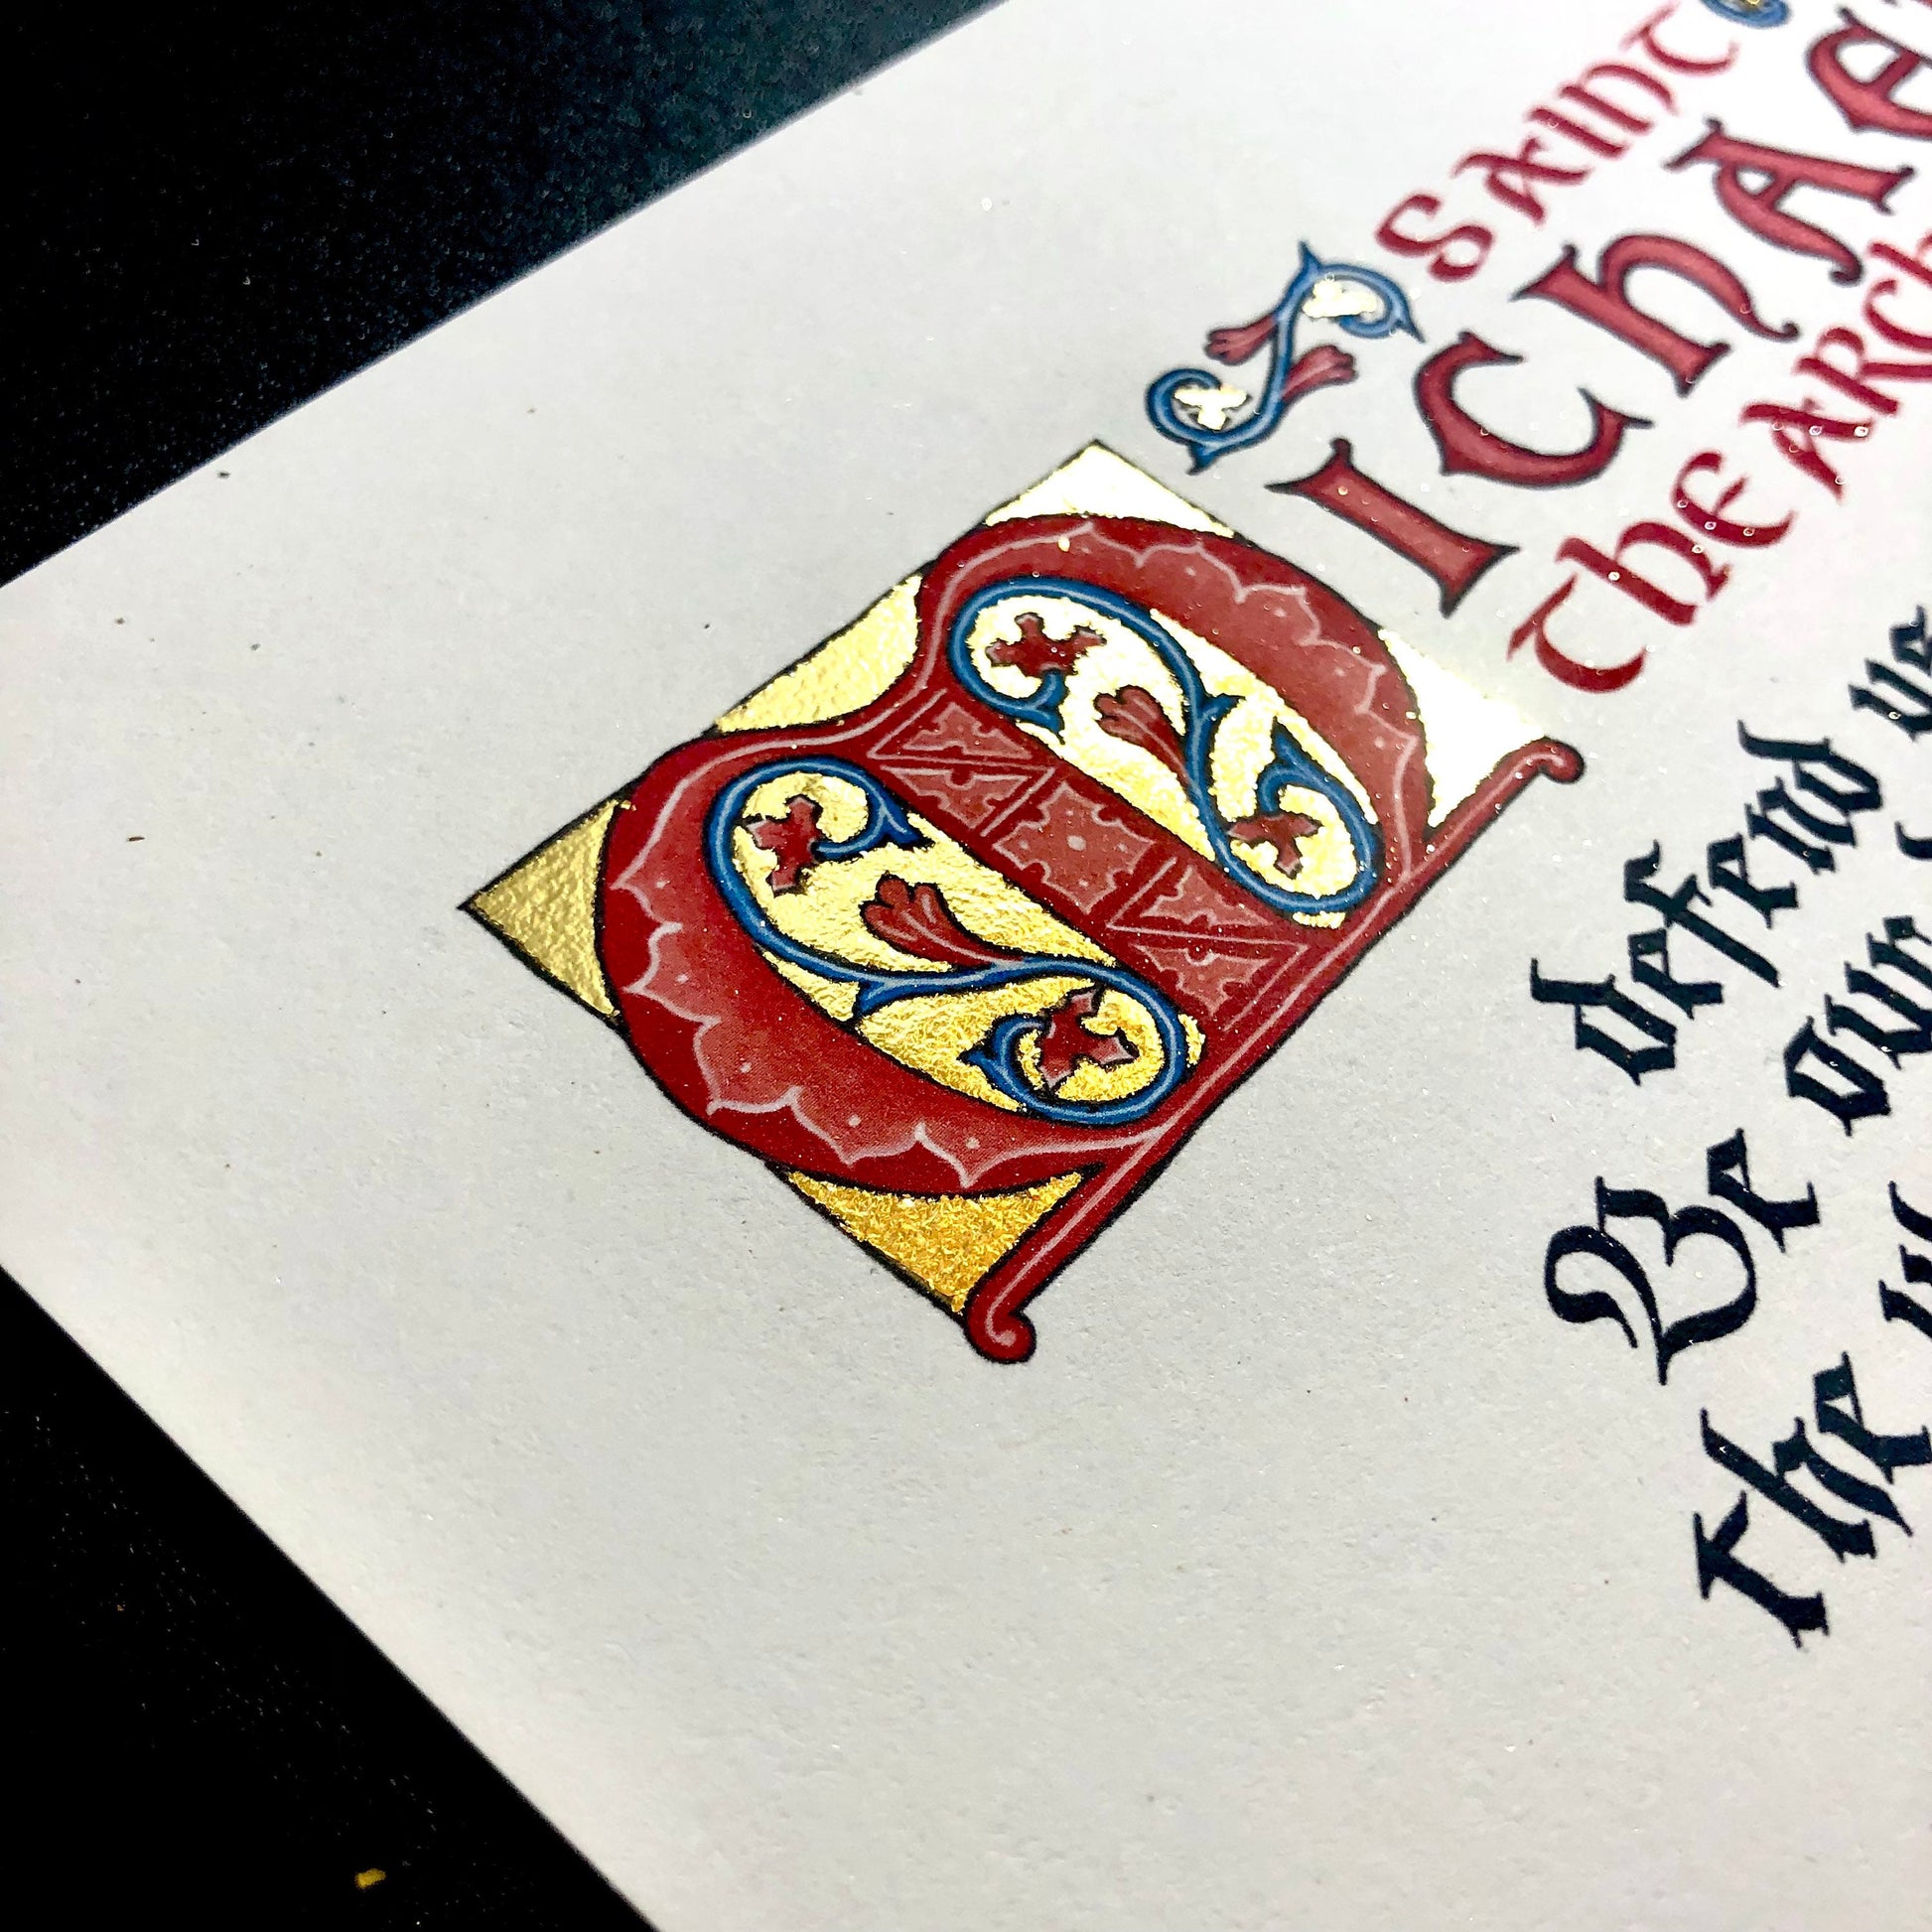 SAINT
MICHAE
THE ARCH
defend us
Be our
The